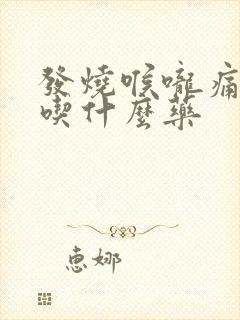 發燒喉嚨痛
喫什麼藥
惠娜